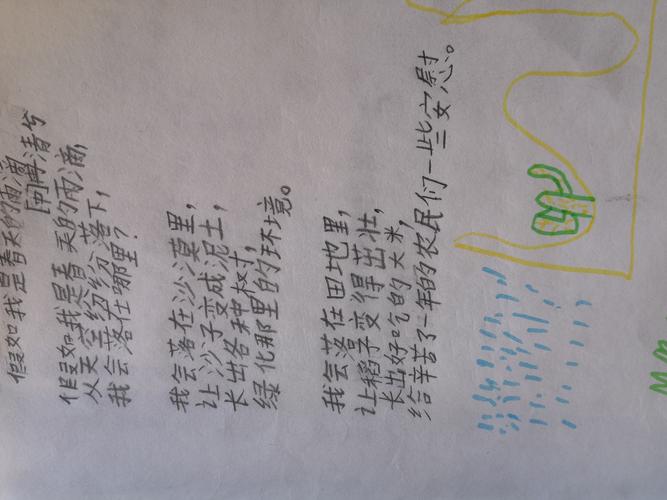 假如我是春天的雨滴
[中]冉清兮
假如我是春天的雨滴,
从天空纷纷落下,
我会落在哪里?
我会落在沙漠里,
让沙子变成泥土,
长出各种树,
绿化那里的环境。
我会落在田地里,
让稻子变得茁壮,
长出好吃的大米,
给辛苦了一年的农民们一些安慰。